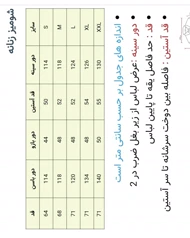 شومیز زنانه
سایز دور سینه قد آستین دور بازو دور باسن قد
S 114 50 44 114 64
M 118 52 48 118 68
L 124 52 48 120 71
XL 126 54 48 134 71
XXL 130 55 50 140 71
اندازه های جدول بر حسب سانتی متر است
دور سینه :عرض لباس از زیر بغل ضرب در 2
قد : حد فاصل یقه تا پایین لباس
قد آستین : فاصله بین دوخت سرشانه تا سر آستین